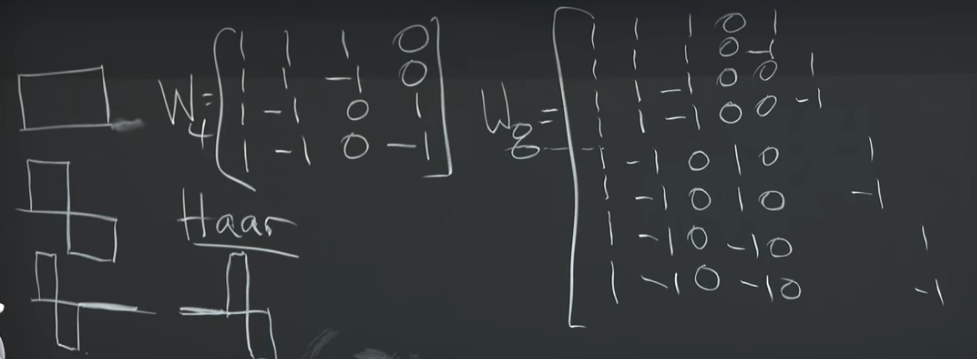 W4 = [1 1 1 0
1 1 -1 0
1 -1 0 1
1 -1 0 -1]
Haar
W8 = [1 1 1 0 1
1 1 1 0 -1
1 1 -1 0 0 1
1 1 -1 0 0 -1
1 -1 0 1 0 1
1 -1 0 1 0 -1
1 -1 0 -1 0 1
1 -1 0 -1 0 -1